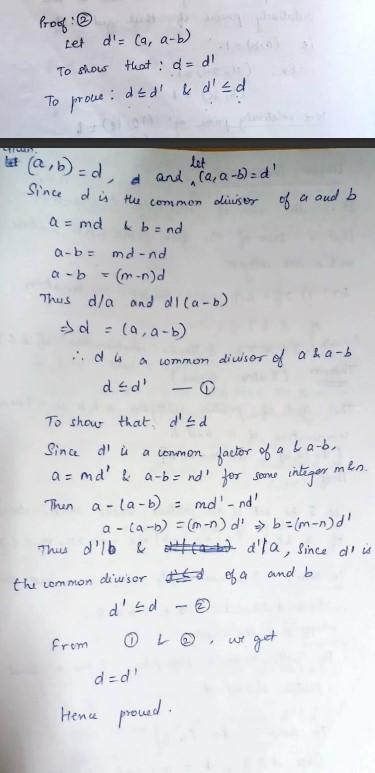 Proof: ②
Let d' = (a, a-b)
To show that : d = d'
To prove : d ≤ d' & d' ≤ d
let (a,b) = d, and let (a, a-b) = d'
Since d is the common divisor of a and b
a = md & b = nd
a-b = md - nd
a-b = (m-n)d
Thus d/a and d|(a-b)
⇒ d = (a, a-b)
∴ d is a common divisor of a & a-b
d ≤ d' — ①
To show that, d' ≤ d
Since d' is a common factor of a & a-b,
a = md' & a-b = nd' for some integer m & n.
Then a - (a-b) = md' - nd'
a - (a-b) = (m-n) d' ⇒ b = (m-n) d'
Thus d'/b & d'/a, Since d' is
the common divisor of a and b
d' ≤ d — ②
From ① & ②, we get
d = d'
Hence proved.